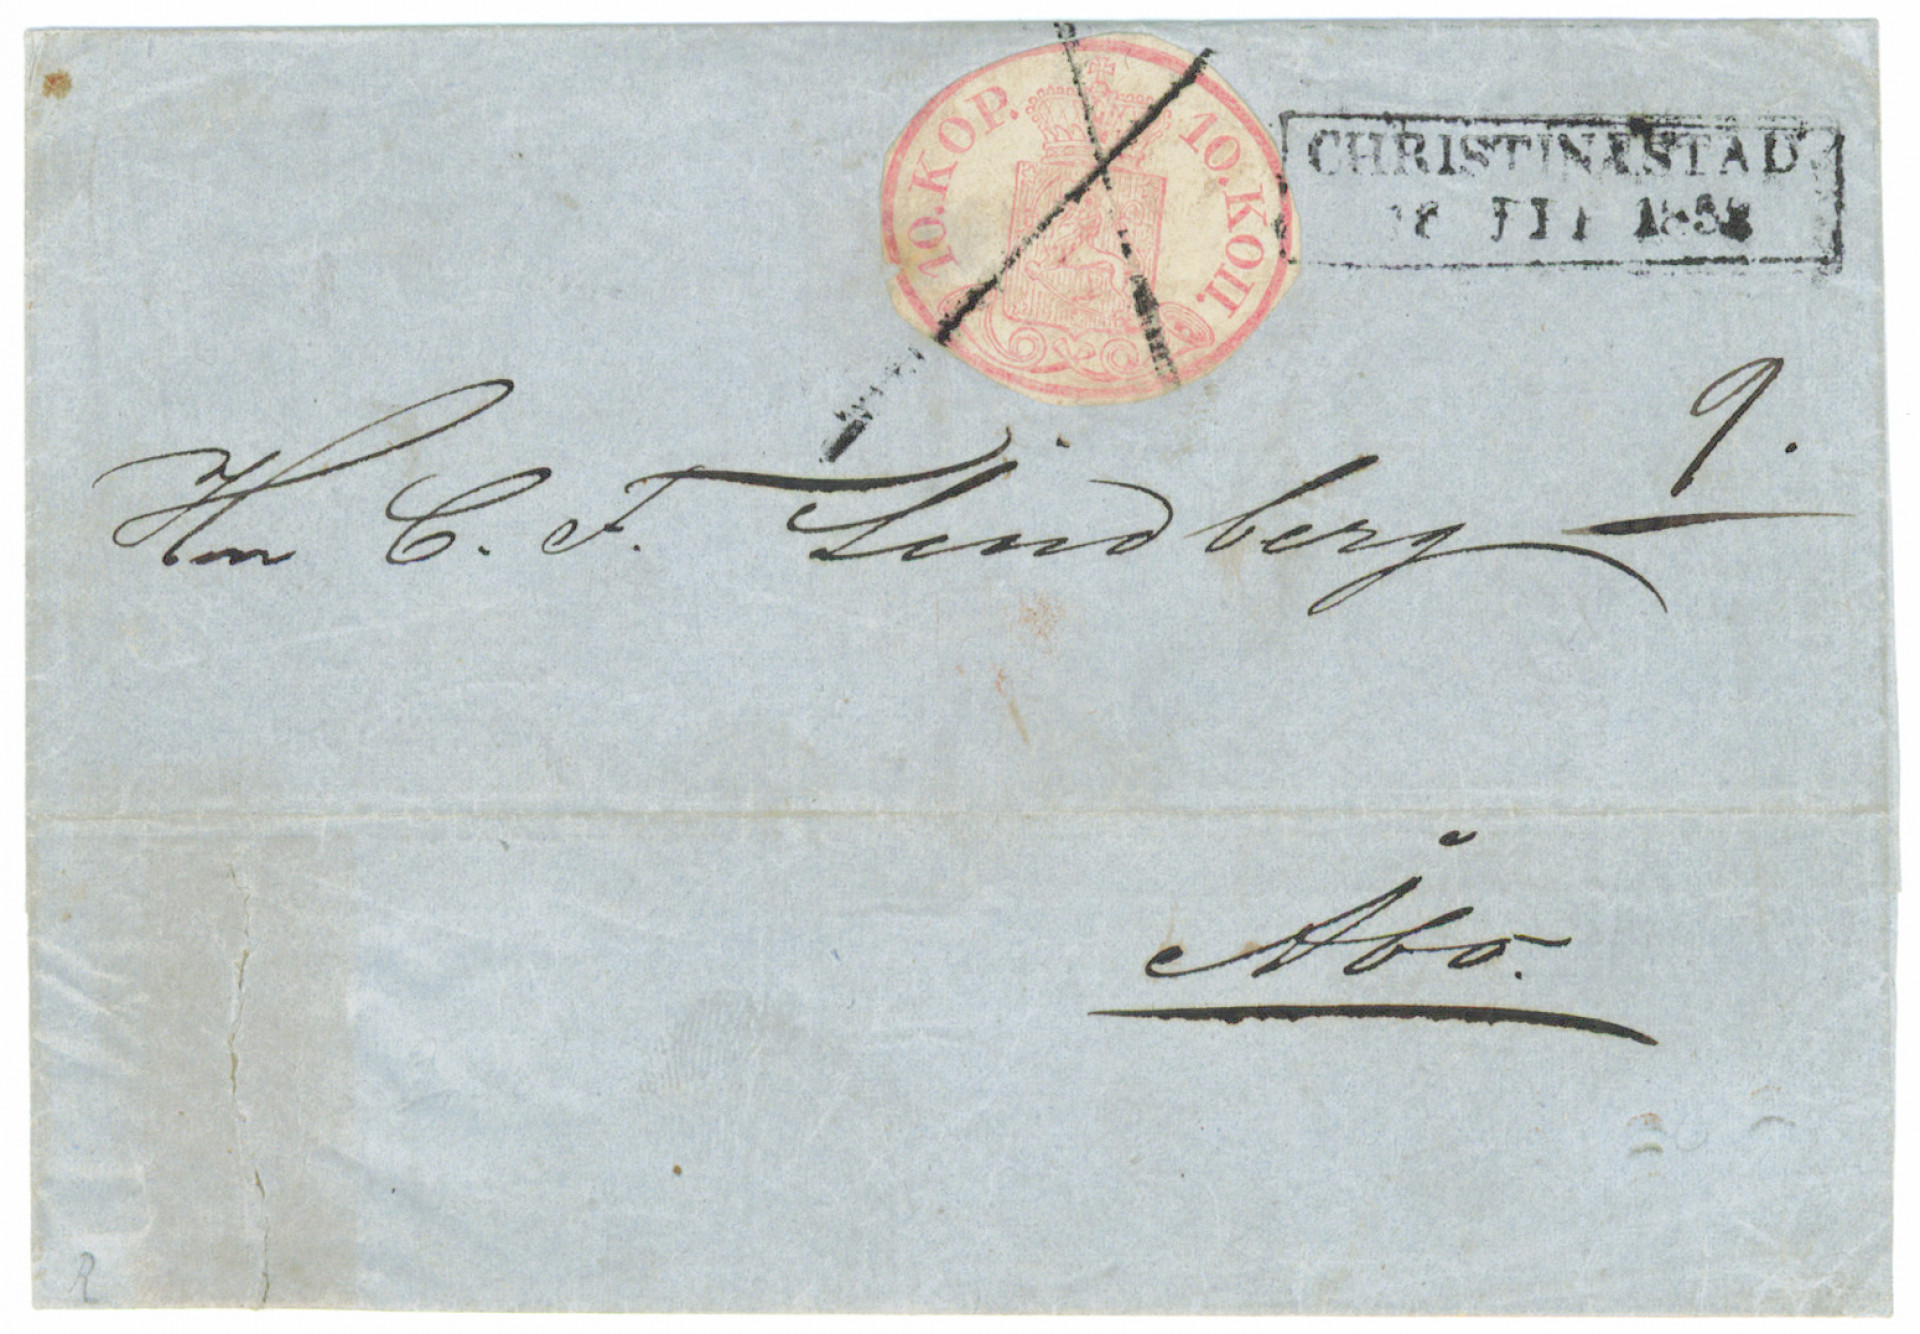 10. KOP. 10. КОП.
CHRISTINÆSTAD
1858
9.
Hrr C. F. Lindberg
Åbo.
R